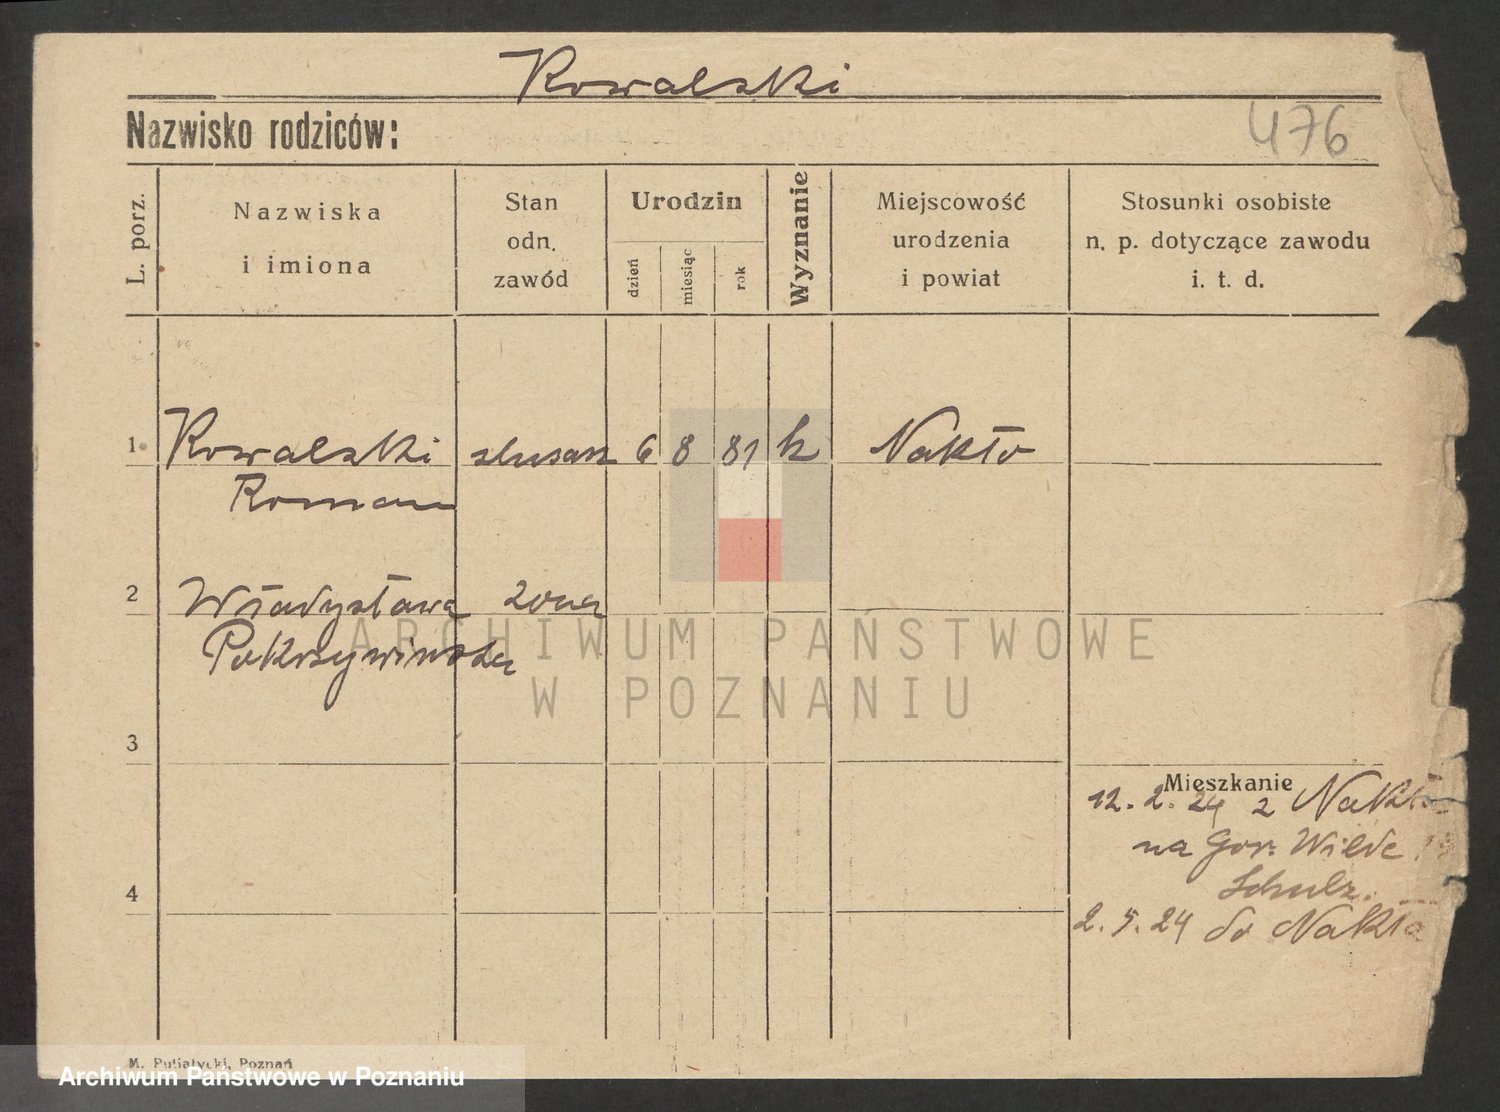 Kowalski
Nazwisko rodziców:
476
L. porz.
Nazwiska
i imiona
Stan
odn.
zawód
Urodzin
dzień
miesiąc
rok
Wyznanie
Miejscowość
urodzenia
i powiat
Stosunki osobiste
n. p. dotyczące zawodu
i. t. d.
1 Kowalski ślusarz 6 8 81 k Nakło
Roman
2 Władysława żona
Pokrzywińska
ARCHIWUM PAŃSTWOWE
W POZNANIU
3
Mieszkanie
12. 2. 24 z Nakła
na Gor. Wilde
Schulz.
4
2. 5. 24 do Nakła
M. Putiatycki, Poznań
Archiwum Państwowe w Poznaniu